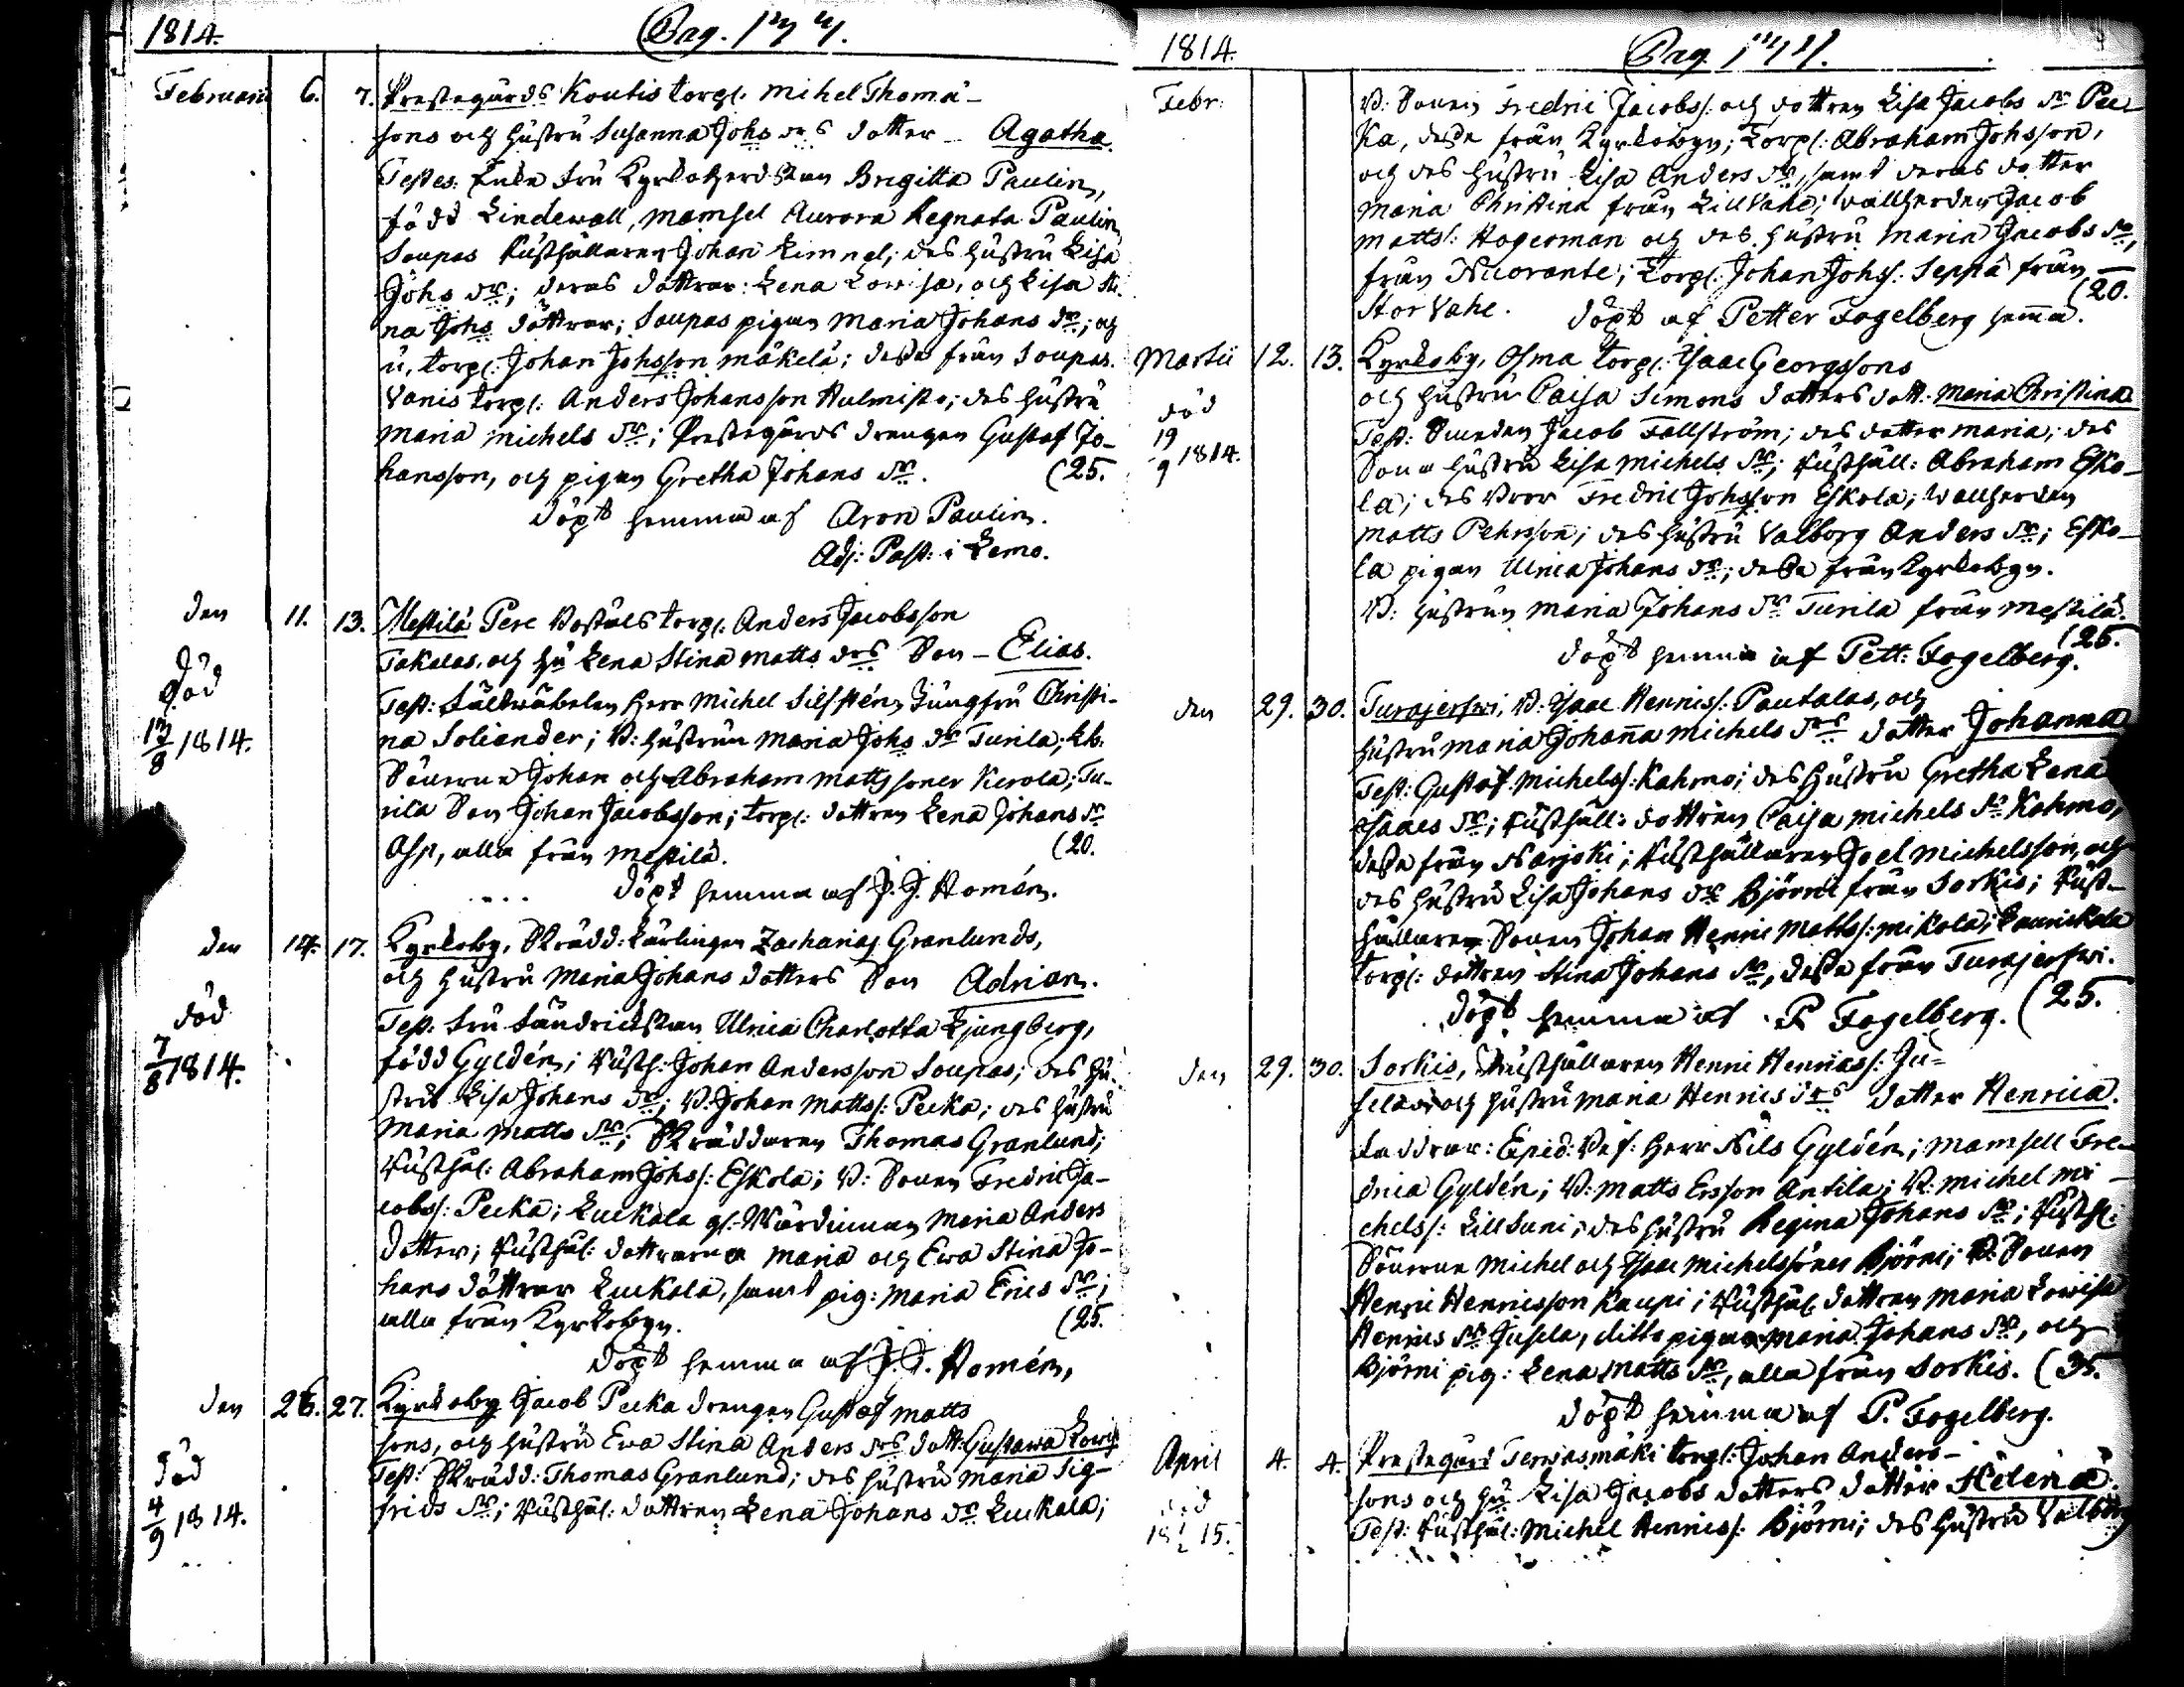 1814.
Pag.
Februarii 6. 7. Prestegårds Koutis torp: Michel Thomæ-
sons och hustru Susanna Johs drs dotter - Agatha.
Testes: Enke fru Kyrkoherdskan Brigitta Paulin,
född Lindewall, Mamsel Aurora Regnata Paulin,
Soupas Rusthållaren Johan Kimnel; des hustru Lisa
Johs dr; deras döttrar: Lena Lovisa, och Lisa Sti-
na Johs döttrar; Soupas pigan Maria Johans dr; och
u. torp: Johan Johsson Mäkelä; desse från Soupas.
Vanis torp: Anders Johansson Hulmisto; des hustru
Maria Michels dr; Prestegårds drengen Gustaf Jo-
hansson, och pigan Gretha Johans dr. (25.
döpt hemma af Aron Paulin.
Adj: Past: i Lemo.
den 11. 13. Mestilä Pere Bostäls torp: Anders Jacobsson
Takalas, och hu Lena Stina Matts drs Son - Elias.
död
17/8 1814.
Test: Fältwäbelen Herr Michel Silfstén, Jungfru Christi-
na Soliander; B: hustrun Maria Johs dr Turila; Lb:
Sönerne Johan och Abraham Matts söner Kerola; Tu-
rila Son Johan Jacobsson; torp: dottren Lena Johans dr
Asp, alla från Mestilä. (20.
döpt hemma af J. J. Homén.
den 14. 17. Kyrkoby, Skrädd: Lärlingen Zacharias Granlunds,
och hustru Maria Johans dotters Son Adrian.
död
7/8 1814.
Test: Fru Fändrickskan Ulrica Charlotta Ljungberg,
född Gyldén; Rusth: Johan Andersson Soupas; des hu-
stru Lisa Johans dr; B: Johan Mattss: Pecka; des hustru
Maria Matts dr; Skräddaren Thomas Granlund;
Rusthål: Abraham Johss: Eskola; B: Sonen Fredric Ja-
cobss: Pecka; Luckala gl. Wärdinnan Maria Anders
dotter; Rusthål: dottrarna Maria och Ewa Stina Jo-
hans döttrar Luckala, samt pig: Maria Erics dr;
alla från Kyrkobyn. (25.
döpt hemma af J. J. Homén,
den 26. 27. Kyrkoby Jacob Pecka drengen Gustaf Matts
sons, och hustru Ewa Stina Anders drs dott: Gustawa Lowis
död
4/9 1814.
Test: Skrädd: Thomas Granlund; des hustru Maria Sig-
frids dr; Rusthål: dottren Lena Johans dr Luckala;
1814.
Pag.
Febr:
B: Sonen Fredric Jacobss: och dottren Lisa Jacobs dr Pec-
ka, desse från Kyrkobyn; torp: Abraham Johsson,
och des hustru Lisa Anders dr, samt deras dotter
Maria Christina från Lillvahe; wallherden Jacob
Mattss: Hogerman och des hustru Maria Jacobs dr,
från Nuorante; torp: Johan Johss: Seppä från
Storvahe. (20.
döpt af Petter Fogelberg hema.
Martii 12. 13. Kyrkoby, Osma torp: Isaac Georgssons
och hustru Caisa Simons dotters dott: Maria Christina
död
19/9 1814.
Test: Smeden Jacob Fallström; des dotter Maria; des
Sons hustru Lisa Michels dr; Rusthåll: Abraham Esko-
la; des bror Fredric Johsson Eskola; Wallherden
Matts Pehrsson; des hustru Valborg Anders dr; Esko-
la pigan Ulrica Johans dr; desse från Kyrkobyn.
B: hustrun Maria Johans dr Turila från Mestilä.
(25.
döpt hemma af Pett: Fogelberg.
den 29. 30. Turajerfwi, B: Isaac Henricss: Pautalas, och
hustru Maria Johana Michels drs dotter Johanna
Test: Gustaf Michelss: Kahmo; des hustru Gretha Lena
Isaacs dr; Rusthåll: dottren Caisa Michels dr Kahmo,
desse från Narjoki; Rusthållaren Joel Michelsson, och
des hustru Lisa Johans dr Björni från Sorkis; Rust-
hållaren Sonen Johan Henric Mattss: Mikola;
torp: dottren Stina Johans dr, desse från Turajerfwi.
döpt hemma af P. Fogelberg. (25.
den 29. 30. Sorkis, Rusthållaren Henric Henricss: Ju-
selas och hustru Maria Henrics drs dotter Henrica.
Faddrar: Exped: Bef: Herr Nils Gyldén; Mamsell Fre-
drica Gyldén; B: Matts Ersson Antila; B: Michel Mi-
chelss: Lill Suni; des hustru Regina Johans dr; Rusthl:
Sönerne Michel och Isaac Michelssöner Björni; B: Sonen
Henric Henricsson Kaupi; Rusthål: dottren Maria Lowisa
Henrics dr Jusela, ditto pigan Maria Johans dr, och
Björni pig: Lena Matts dr, alla från Sorkis. (35.
döpt hemma af P. Fogelberg.
April 4. 4. Prestegård Terrasmäki torp: Johan Anders-
sons och hu Lisa Jacobs dotters dotter Helena.
Test: Rusthål: Michel Henricss: Björni; des hustru Valborg